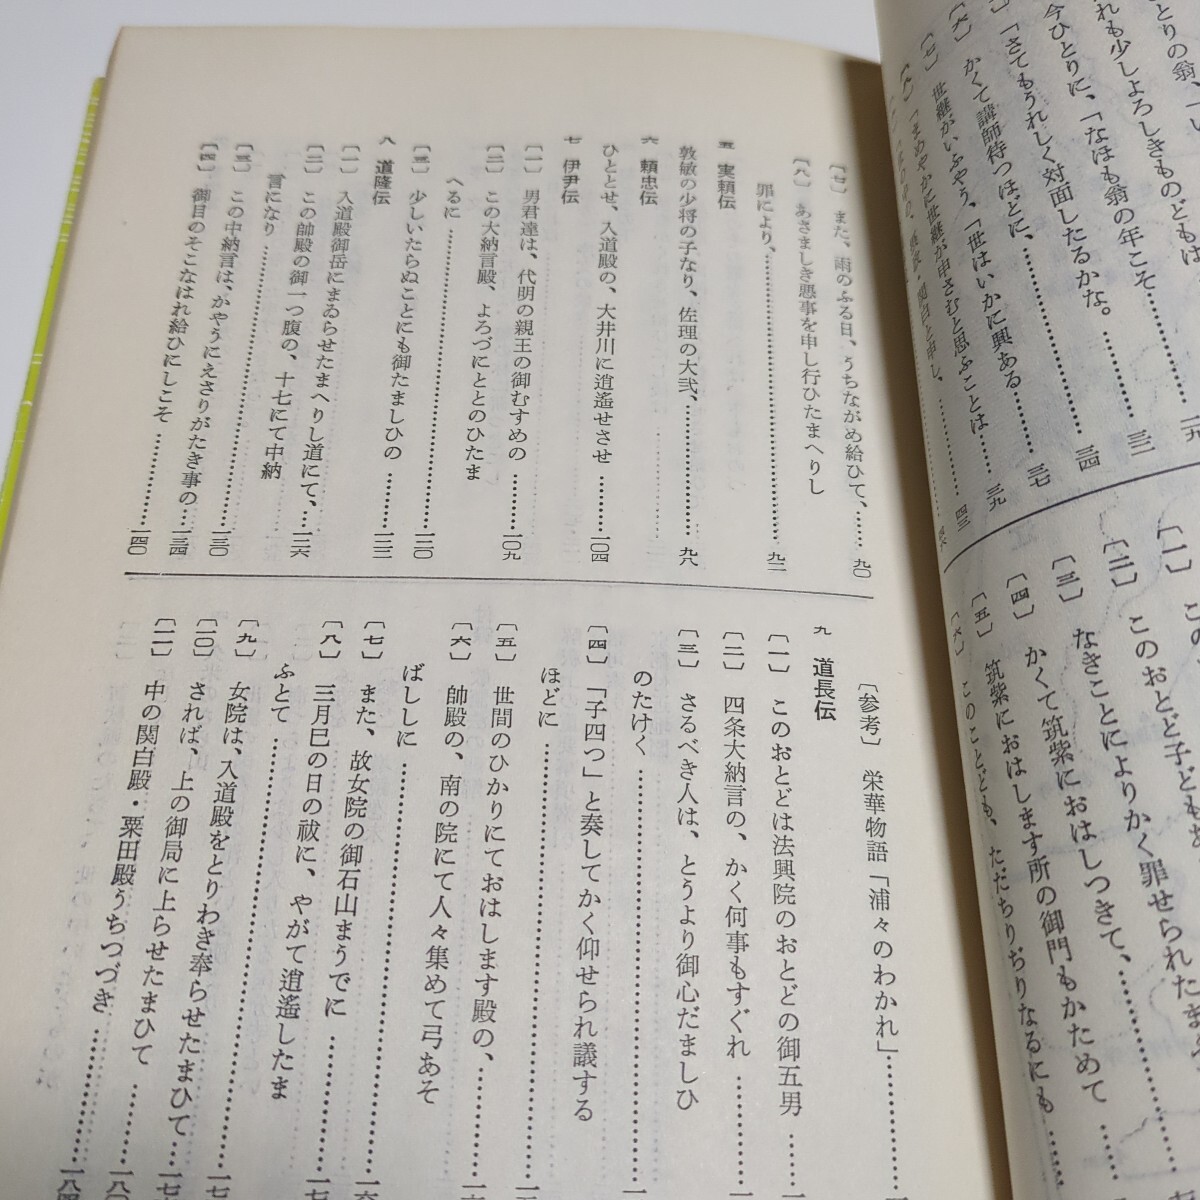 とりの翁、
れも少しよろしきものどもは
今ひとりに、「なほも翁の年こそ……二九
「さてもうれしく対面したるかな。……三一
〔六〕 かくて講師待つほどに、……三四
〔七〕 世継がいふやう、「世はいかに興ある……三七
〔八〕 「まめやかに世継が申さむと思ふことは……三九
〔一〕
〔二〕 このおとど子どもあ
〔三〕 なきことによりかく罪せられたま
〔四〕 かくて筑紫におはしつきて、……
〔五〕 筑紫におはします所の御門もかためて……
〔六〕 このことども、ただちりぢりなるにも……
〔七〕 また、雨のふる日、うちながめ給ひて、……九〇
〔八〕 あさましき悪事を申し行ひたまへりし
罪により、……九二
五 実頼伝
敦敏の少将の子なり、佐理の大弐、……九八
六 頼忠伝
ひととせ、入道殿の、大井川に逍遙せさせ……一〇四
七 伊尹伝
〔一〕 男君達は、代明の親王の御むすめの……一〇九
〔二〕 この大納言殿、よろづにととのひたま
へるに……一二〇
〔三〕 少しいたらぬことにも御たましひの……一二二
八 道隆伝
〔一〕 入道殿御岳にまゐらせたまへりし道にて、……一二六
〔二〕 この帥殿の御一つ腹の、十七にて中納
言になり……一三〇
〔三〕 この中納言は、かやうにえさりがたき事の……一三四
〔四〕 御目のそこなはれ給ひにしこそ……一四〇
〔参考〕 栄華物語「浦々のわかれ」……
九 道長伝
〔一〕 このおとどは法興院のおとどの御五男……
〔二〕 四条大納言の、かく何事もすぐれ……
〔三〕 さるべき人は、とうより御心だましひ
のたけく……
〔四〕 「子四つ」と奏してかく仰せられ議する
ほどに……
〔五〕 世間のひかりにておはします殿の、……
〔六〕 帥殿の、南の院にて人々集めて弓あそ
ばししに……
〔七〕 また、故女院の御石山まうでに……
〔八〕 三月巳の日の祓に、やがて逍遙したま
ふとて……
〔九〕 女院は、入道殿をとりわき奉らせたまひて……
〔一〇〕 されば、上の御局に上らせたまひて……
〔一一〕 中の関白殿・粟田殿うちつづき……